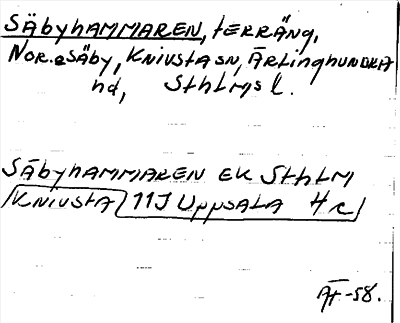 Säbyhammaren, terräng,
Nor. Säby, Knivsta sn, Ärlinghundra
hd, Sthlms l.
Säbyhammaren EK Sthlm
Knivsta 11J Uppsala 4 c
ÄT-58.